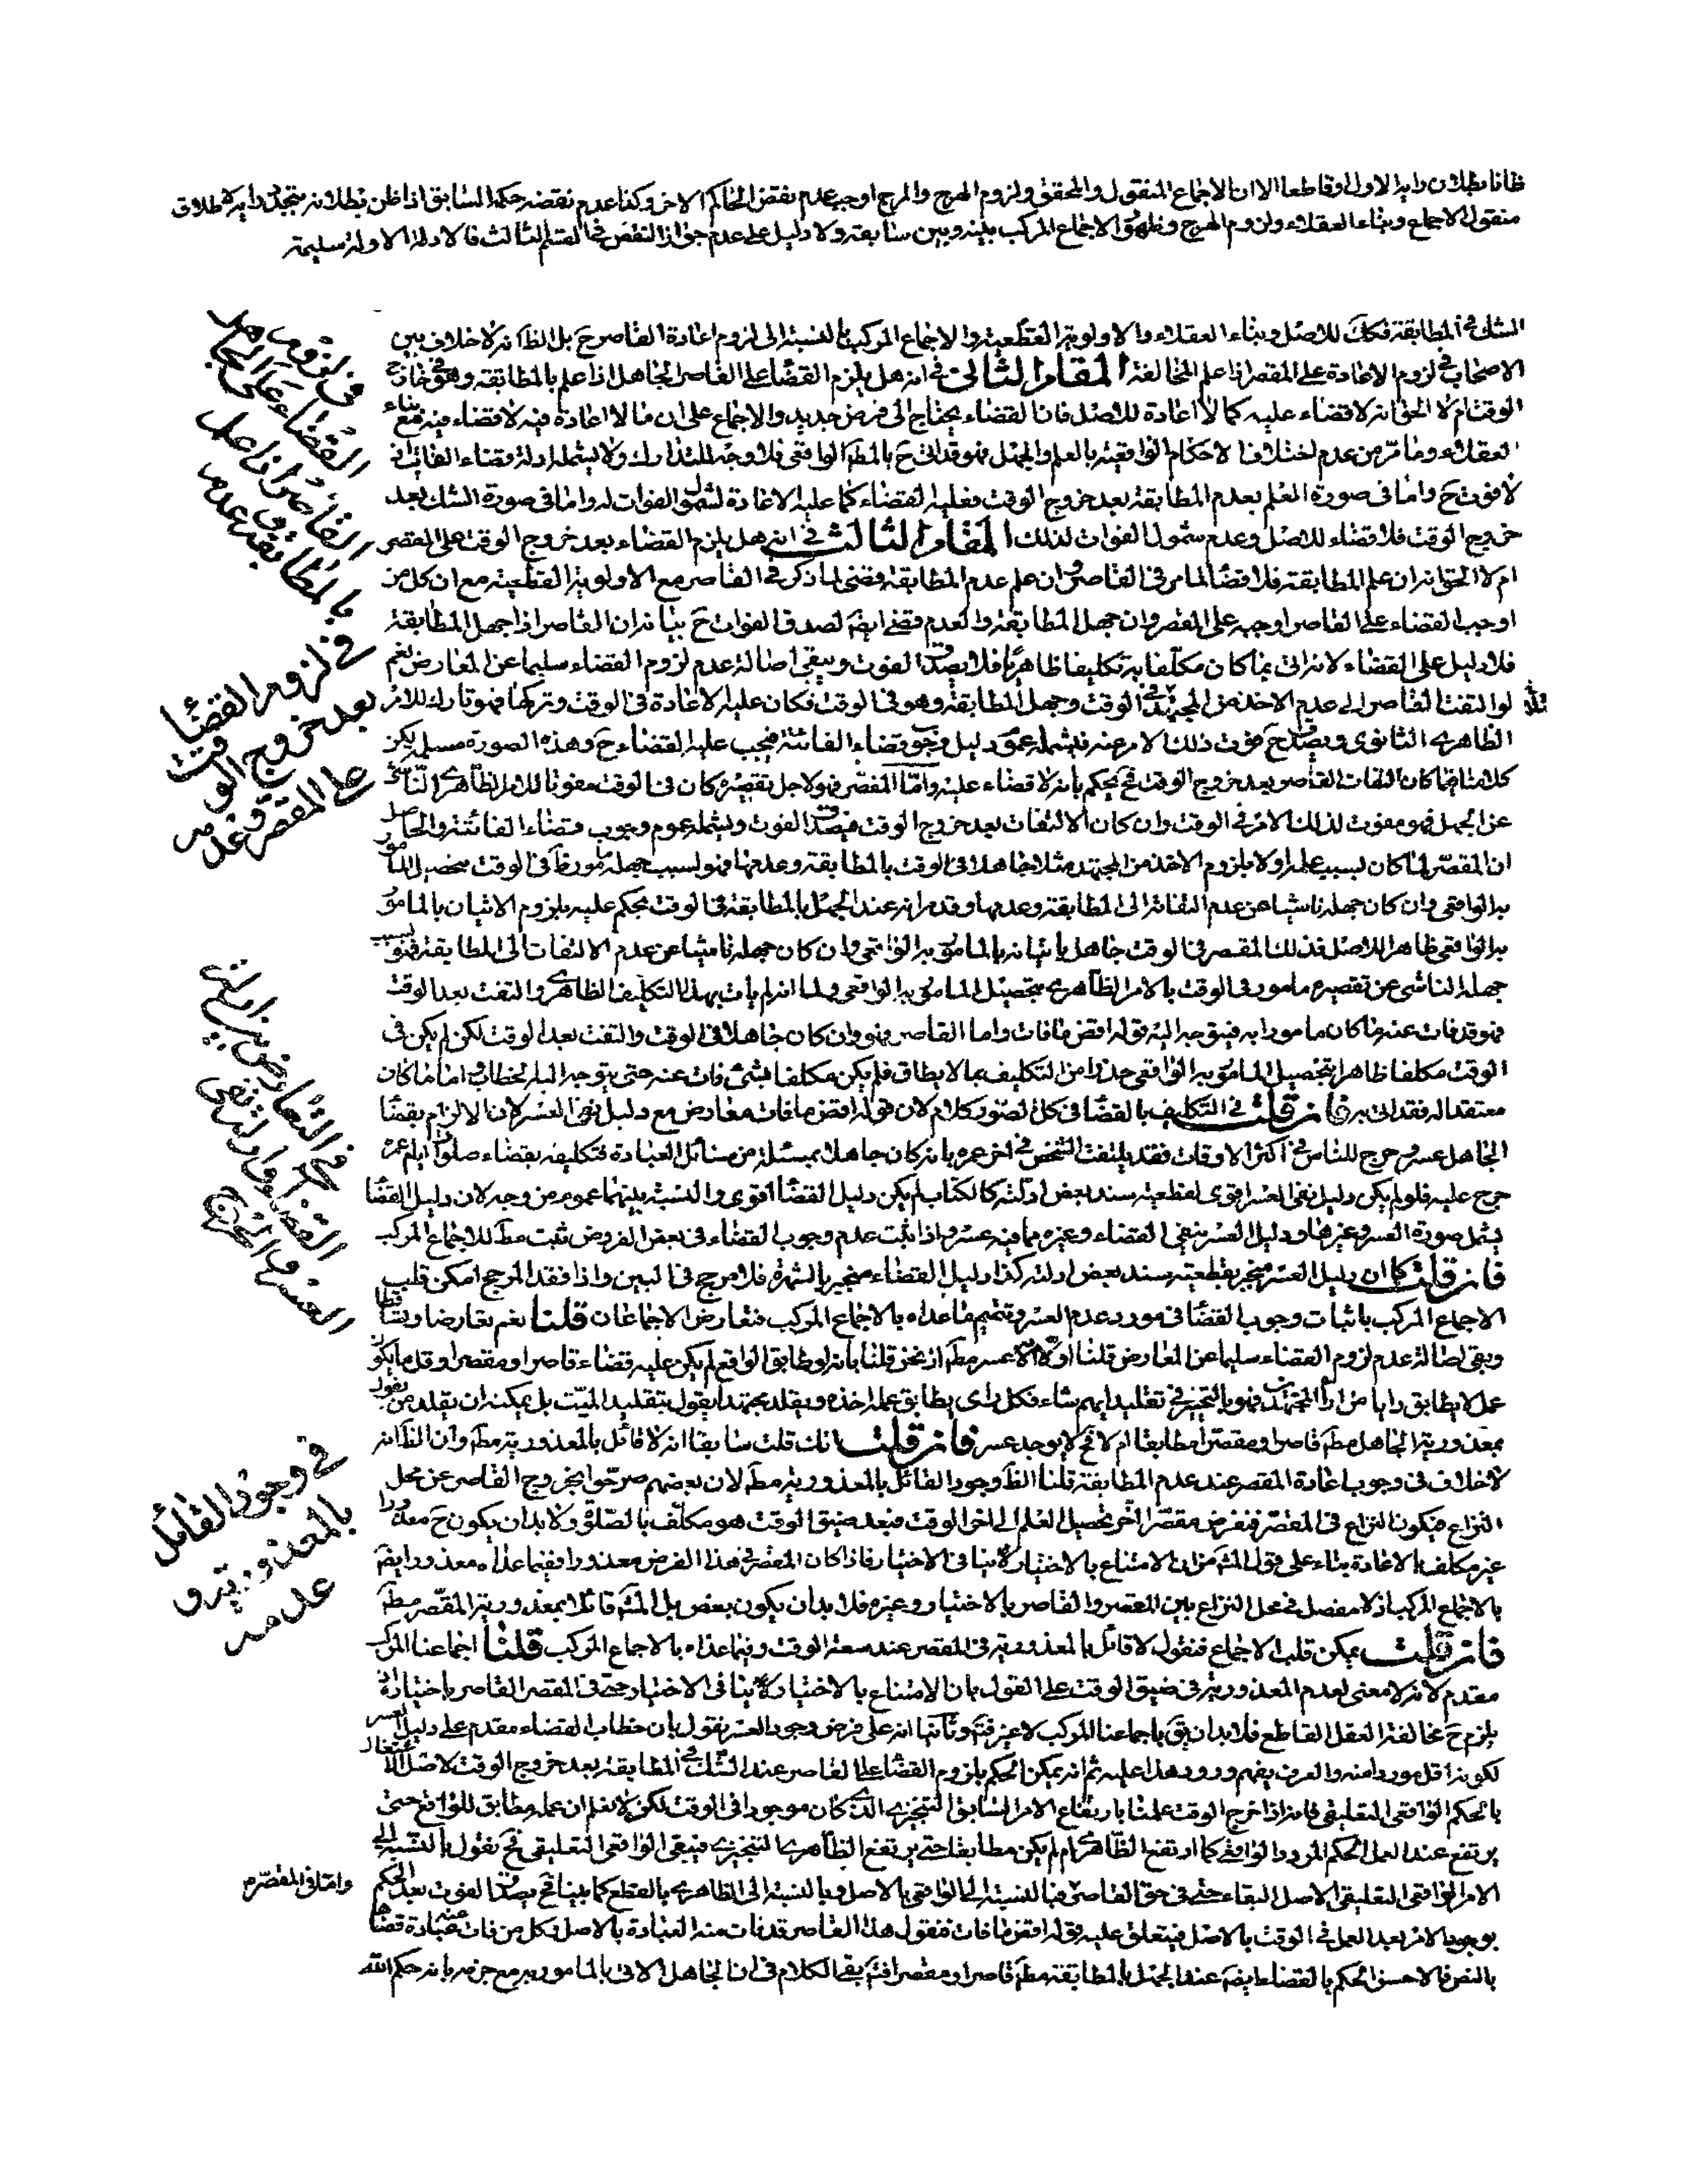 ظانا بطلان رايه الاول او قاطعا الا ان الاجماع المنقول والمحقق ولزوم الهرج والمرج اوجب عدم نقض الحاكم الاخر وكذا عدم نقضه حكمه السابق اذا ظن بطلانه بتجدد رايه لاطلاق
منقول الاجماع وبناء العقلاء ولزوم الهرج وظهور الاجماع المركب بينه وبين سابقه ولا دليل على عدم جواز النقض في القسم الثالث فالادلة الاولة سليمة
الشك في المطابقة فكك للاصل وبناء العقلاء والاولوية القطعية والاجماع المركب بالنسبة الى لزوم اعادة القاصر ح بل الظ انه لا خلاف بين
الاصحاب في لزوم الاعادة على المقصر اذا علم المخالفة المقام الثاني في انه هل يلزم القضاء على القاصر الجاهل اذا علم بالمطابقة وهو في خارج
الوقت ام لا الحق انه لا قضاء عليه كما لا اعادة للاصل فان القضاء يحتاج الى فرض جديد والاجماع على ان ما لا اعادة فيه لا قضاء فيه مع بناء
العقلاء وما مر من عدم اختلاف الاحكام الواقعية بالعلم والجهل فهو قد اتى ح بالمط الواقعي فلا وجه للتدارك ولا يشمله ادلة قضاء الفائت اذ
لا فوت ح واما في صورة العلم بعدم المطابقة بعد خروج الوقت فعليه القضاء كما عليه الاعادة لشمول الفوات له واما في صورة الشك بعد
خروج الوقت فلا قضاء للاصل وعدم شمول الفوات لذلك المقام الثالث في انه هل يلزم القضاء بعد خروج الوقت على المقصر
ام لا الحق انه ان علم المطابقة فلا قضاء لما مر في القاصر وان علم عدم المطابقة قضى لما ذكر في القاصر مع الاولوية القطعية مع ان كل من
اوجب القضاء على القاصر اوجبه على المقصر وان جهل المطابقة والعدم قضى ايضا لصدق الفوات ح بيانه ان القاصر اذا جهل المطابقة
فلا دليل على القضاء لانه اتى بما كان مكلفا به تكليفا ظاهريا فلا يصدق الفوت ويبقى اصالة عدم لزوم القضاء سليما عن المعارض نعم
لو التفت القاصر الى عدم الاخذ من المجتهد في الوقت وجهل المطابقة وهو في الوقت فكان عليه الاعادة في الوقت وتركها فهو تارك للامر
الظاهري الثانوي ويصدق ح فوت ذلك الامر عنه فيشمله عموم دليل وجوب قضاء الفائتة فيجب عليه القضاء ح وهذه الصورة مسلم لكن
كلامنا فيما كان التفات القاصر بعد خروج الوقت فح نحكم بانه لا قضاء عليه واما المقصر فهو لاجل تقصيره كان في الوقت مفوتا للامر الظاهري الناشئ
عن الجهل فهو مفوت لذلك الامر في الوقت وان كان الالتفات بعد خروج الوقت فيصدق الفوت ويشمله عموم وجوب قضاء الفائتة والحاصل
ان المقصر لما كان بسبب علمه اولا بلزوم الاخذ من المجتهد مثلا جاهلا في الوقت بالمطابقة وعدمها فهو بسبب جهله مامور في الوقت بتحصيل المامور
به الواقعي وان كان جهله ناشيا عن عدم التفاته الى المطابقة وعدمها وقد مر انه عند الجهل بالمطابقة في الوقت يحكم عليه بلزوم الاتيان بالمامور
به الواقعي ظاهرا للاصل فذلك المقصر في الوقت جاهل باتيانه بالمامور به الواقعي وان كان جهله ناشيا عن عدم الالتفات الى المطابقة فهو بسبب
جهله الناشئ عن تقصيره مامور في الوقت بالامر الظاهري بتحصيل المامور به الواقعي ولما انه لم يات بهذا التكليف الظاهري والتفت بعد الوقت
فهو قد فات عنه ما كان مامورا به فيتوجه اليه قوله اقض ما فات واما القاصر فهو وان كان جاهلا في الوقت والتفت بعد الوقت لكن لم يكن في
الوقت مكلفا ظاهرا بتحصيل المامور به الواقعي حذرا من التكليف بما لا يطاق فلم يكن مكلفا بشئ فات عنه حتى يتوجه اليه الخطاب واما ما كان
معتقدا له فقد اتى به فان قلت في التكليف بالقضاء في كل الصور كلام لان قوله اقض ما فات معارض مع دليل نفي العسر لان الالزام بقضاء
الجاهل عسر وحرج للناس في اكثر الاوقات فقد يلتفت الشخص في اخر عمره بانه كان جاهلا بمسئلة من مسائل العبادة فتكليفه بقضاء صلوات ايام عمره
حرج عليه فلو لم يكن دليل نفي العسر اقوى لقطعية سند بعض ادلته كالكتاب لم يكن دليل القضاء اقوى والنسبة بينهما عموم من وجه لان دليل القضاء
يشمل صورة العسر وغيرها ودليل العسر ينفي القضاء وغيره مما فيه عسر واذا ثبت عدم وجوب القضاء في بعض الفروض ثبت مط للاجماع المركب
فان قلت كما ان دليل العسر منجبر بقطعية سند بعض ادلته كذا دليل القضاء منجبر بالشهرة فلا مرجح في البين واذا فقد المرجح امكن قلب
الاجماع المركب باثبات وجوب القضاء في مورد عدم العسر وتتميم ما عداه بالاجماع المركب فتعارض الاجماعان قلنا نعم تعارضا وتساقطا
وبقى اصالة عدم لزوم القضاء سليما عن المعارض قلنا اولا لا عسر مط اذ نحن قلنا بانه لو طابق الواقع لم يكن عليه قضاء قاصرا او مقصرا وقل ما يكون
عمل لا يطابق رايا من اراء المجتهدين فهو بالتخيير في تقليد ايهم شاء فكل راى يطابق عمله اخذه ويقلد مجتهدا يقول بتقليد الميت بل يمكنه ان يقلد من يقول
بمعذورية الجاهل مط قاصرا او مقصرا مطابقا ام لا فح لا يوجد عسر فان قلت انك قلت سابقا انه لا قائل بالمعذورية مط وان الظ انه
لا خلاف في وجوب اعادة المقصر عند عدم المطابقة قلنا الظ وجود القائل بالمعذورية مط لان بعضهم صرحوا بخروج القاصر عن محل
النزاع فيكون النزاع في المقصر فنفرض مقصرا اخر تحصيل العلم الى اخر الوقت فبعد ضيق الوقت هو مكلف بالصلوة ولا بد ان يكون ح معذورا
غير مكلف بالاعادة بناء على قول المش من ان الامتناع بالاختيار لا ينافي الاختيار فاذا كان المقصر في هذا الفرض معذورا ففيما عداه معذور ايضا
بالاجماع المركب اذ لا مفصل في محل النزاع بين المقصر والقاصر بالاختيار وغيره فلا بد ان يكون بعض بل المش قائلا بمعذورية المقصر مط
فان قلت يمكن قلب الاجماع فنقول لا قائل بالمعذورية في المقصر عند سعة الوقت وفيما عداه بالاجماع المركب قلنا اجماعنا المركب
مقدم لانه لا معنى لعدم المعذورية في ضيق الوقت على القول بان الامتناع بالاختيار لا ينافي الاختيار حتى في المقصر القاصر باختياره اذ
يلزم ح مخالفة العقل القاطع فلا بد ان يق باجماعنا المركب لا غير فتم وثانيا انه على فرض وجود العسر نقول بان خطاب القضاء مقدم على دليل العسر
لكونه اقل موردا منه والعرف يفهم ورود هذا عليه ثم انه يمكن الحكم بلزوم القضاء على القاصر عند الشك في المطابقة بعد خروج الوقت لاصل الاشتغال
بالحكم الواقعي التعليقي فانه اذا خرج الوقت علمنا بارتفاع الامر السابق التنجيزي الذي كان موجودا في الوقت لكن لا نعلم ان عمله مطابق للواقع حتى
يرتفع عند العمل الحكم المردود الواقعي كما ارتفع الظاهري ام لم يكن مطابقا حتى يرتفع الظاهري التنجيزي فيبقى الواقعي التعليقي فح نقول بالنسبة الى
الامر الواقعي التعليقي الاصل البقاء حتى في حق القاصر فبالنسبة الى الواقعي بالاصل وبالنسبة الى الظاهري بالقطع كما بينا فح يصدق الفوت بعد الحكم
بوجوب الامر بعد العمل في الوقت بالاصل فيتعلق عليه قوله اقض ما فات فنقول هذا القاصر قد فات منه العبادة بالاصل وكل من فات منه عبادة قضاها
بالنص فالاحسن الحكم بالقضاء ايضا عند الجهل بالمطابقة مط قاصرا او مقصرا فتم بقى الكلام في ان الجاهل الاتي بالمامور به مع جزمه بانه حكم الله
في لزوم
القضاء على الجاهل
القاصر اذا علم
بالمطابقة وعدمه
في لزوم القضاء
بعد خروج الوقت
على المقصر وعدمه
في التعارض بين ادلة
القضاء وادلة نفي
العسر والحرج
في وجود القائل
بالمعذورية و
عدمه
واما في المقصر م